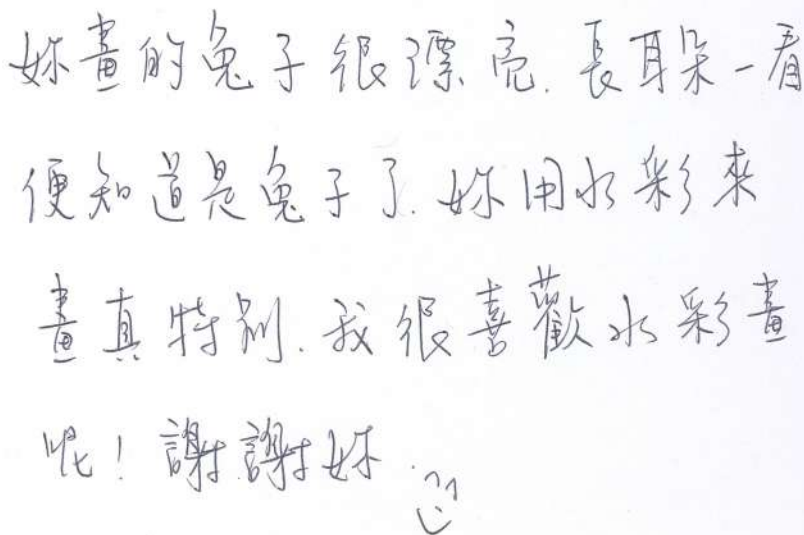 妳畫的兔子很漂亮. 長耳朵一看
便知道是兔子了. 妳用水彩來
畫真特別. 我很喜歡水彩畫
呢! 謝謝妳.